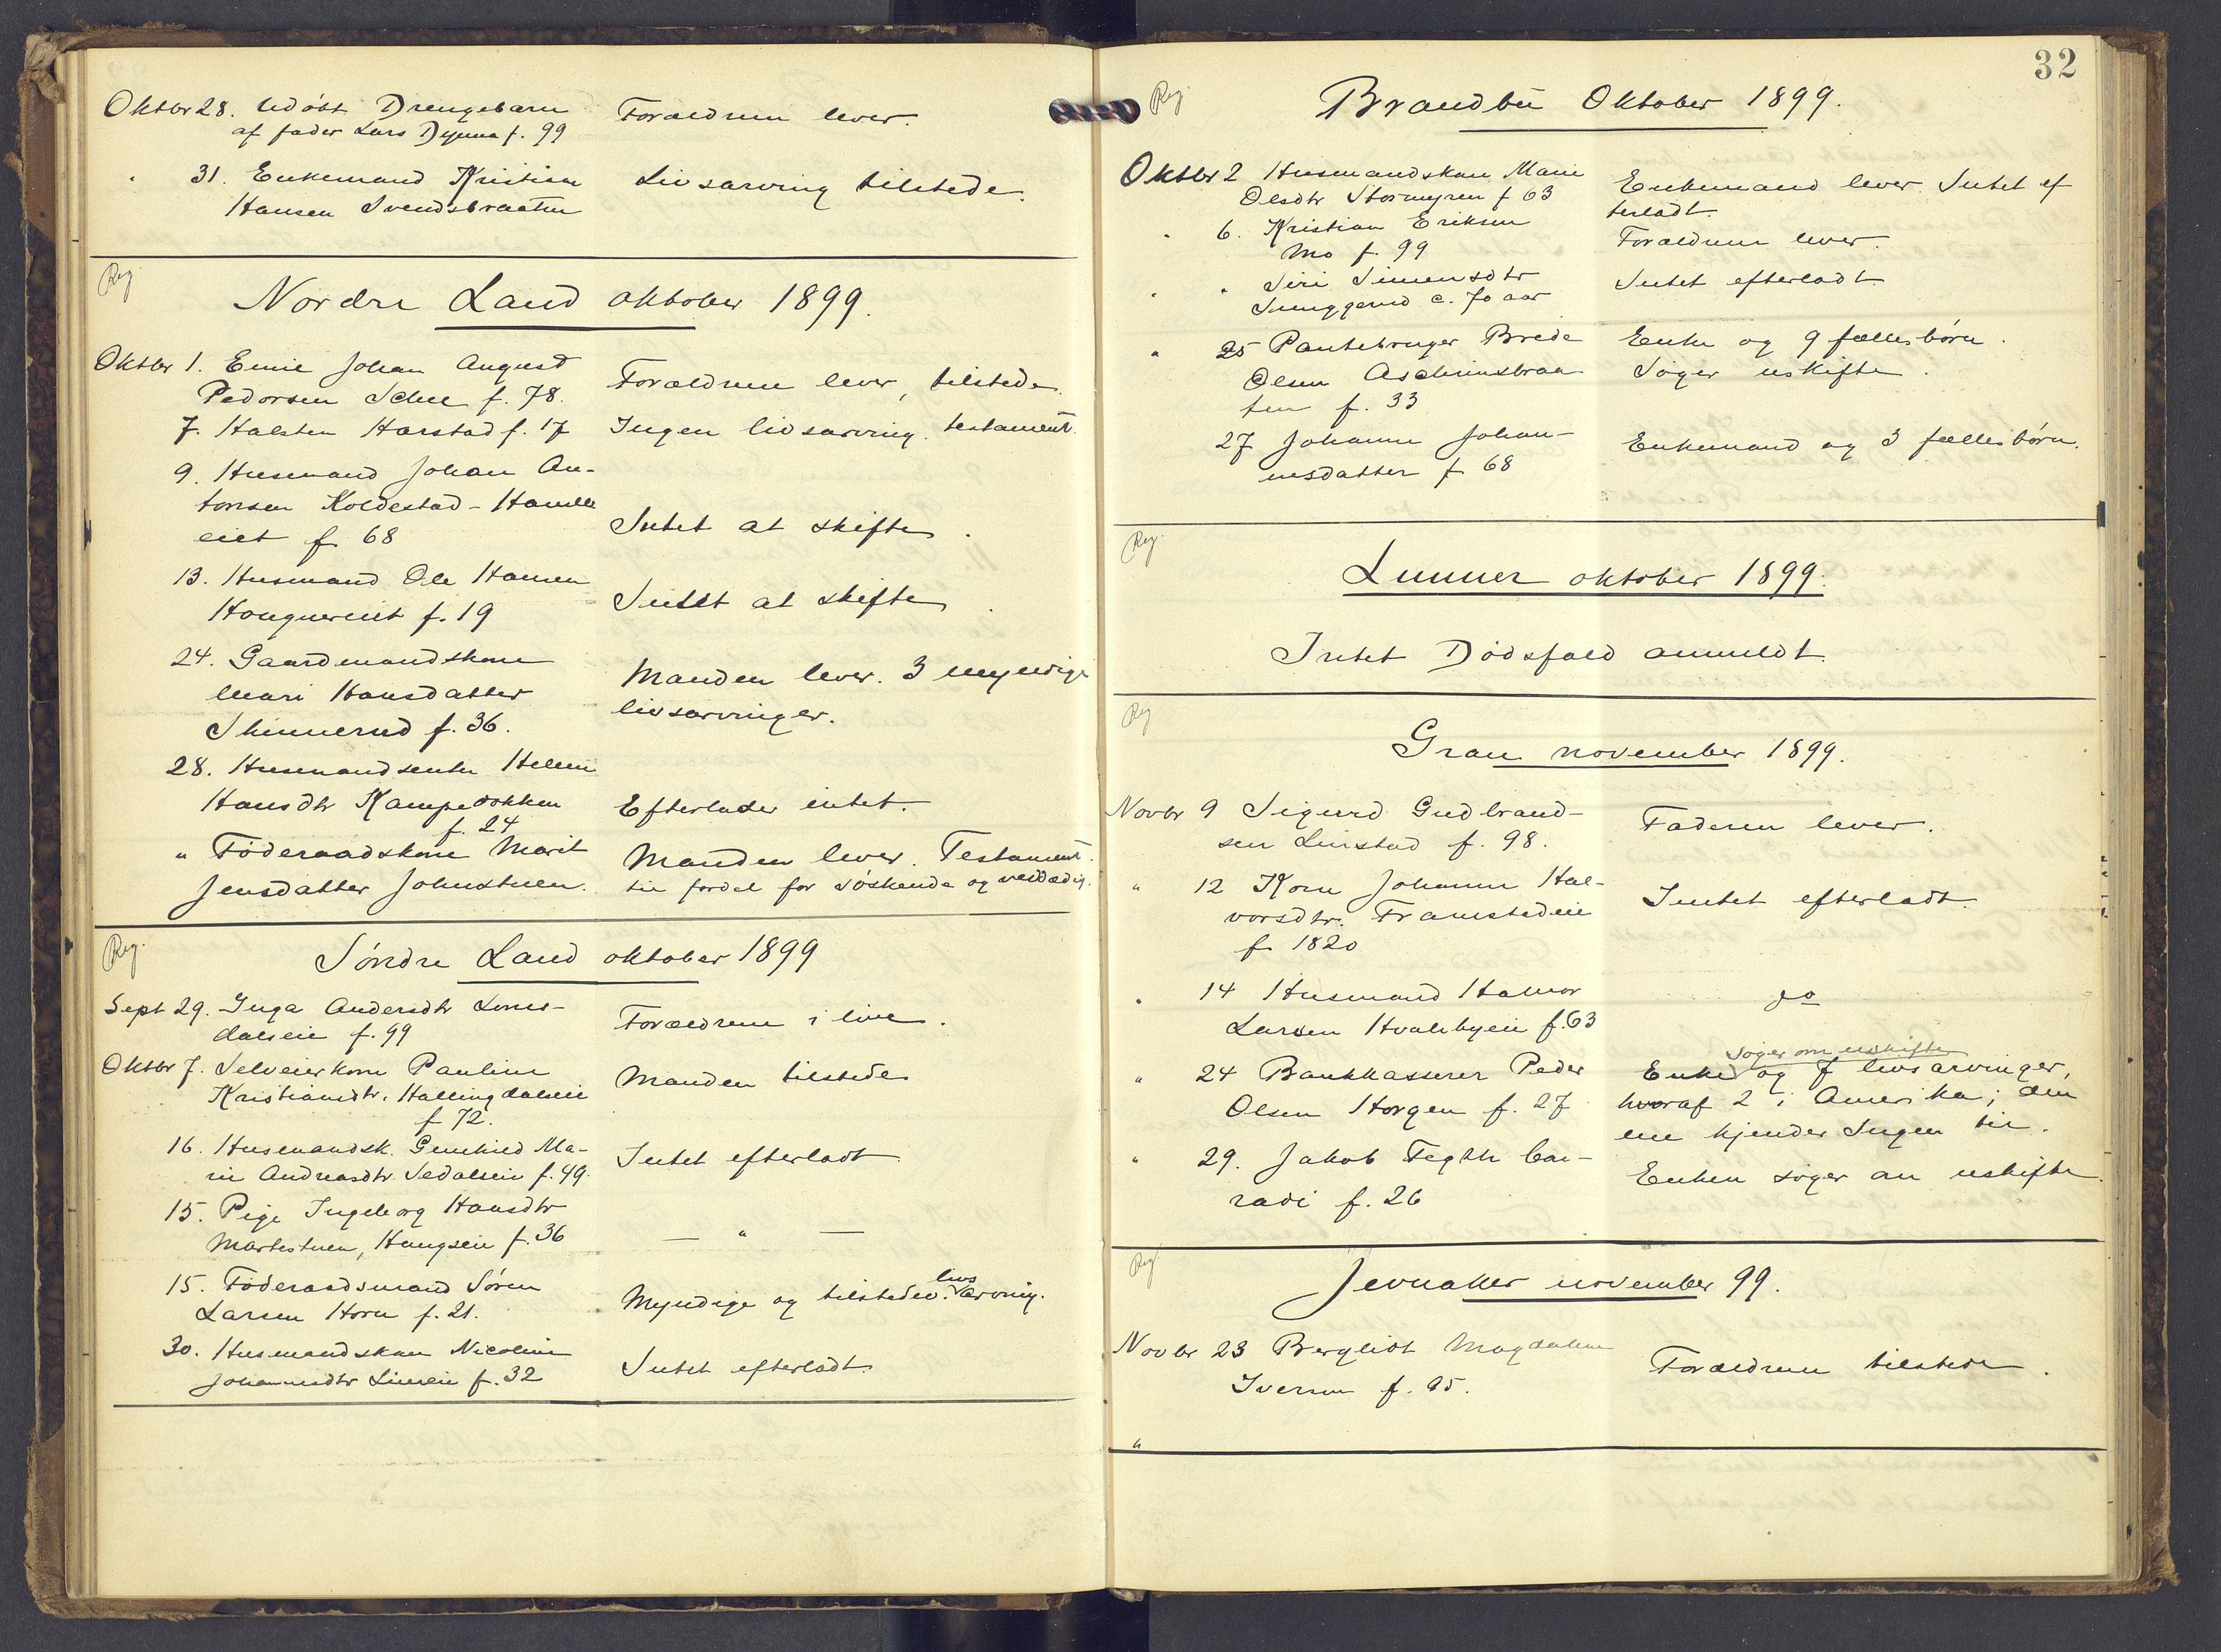 Oktbr 28. Udøbt Drengebarn
af fader Lars Dynna f. 99
Forældrene lever.
" 31. Enkemand Kristian
Hansen Svendsbraaten
Livsarving tilstede.
Reg.
Nordre Land oktober 1899.
Oktbr 1. Emil Johan August
Pedersen f. 78.
Forældrene lever, tilstede.
7. Halsten Harstad f. 17
Ingen livsarving. testament.
9. Husmand Johan An-
tonsen Koldestad-
eiet f. 68
Intet at skifte.
13. Husmand Ole Hansen
f. 19
Intet at skifte.
24. Gaardmandskone
Mari Hansdatter
Skinnerud f. 36.
Manden lever. 3 myndige
livsarvinger.
28. Husmandsenke Helene
Hansdtr Kampedokken
f. 24
Efterlader intet.
" Föderaadskone Marit
Jensdatter Johnstuen.
Manden lever. Testament.
til fordel for söskende og
Reg.
Söndre Land oktober 1899
Sept 29. Inga Andersdtr
dalseie f. 99
Forældrene i live.
Oktbr 7. Selveierkone Pauline
Kristiansdtr. Hallingdalseie
f 72.
Manden tilstede
16. Husmandsk. Gunhild Ma-
rie Andreasdtr. f. 49.
Intet efterladt
15. Pige Ingeborg Hansdtr
Martestuen, Haugseie f. 36
— " —
15. Föderaadsmand Sören
Larsen Horn f. 21.
livs
Myndige og tilstedev. arving.
30. Husmandskone Nicoline
Johannesdtr f. 32
Intet efterladt.
32
Reg.
Brandbu Oktober 1899.
Oktbr 2 Husmandskone Marie
Olsdtr Stormyren f 63
Enkemand lever. Intet ef
terladt.
" 6. Kristian Eriksen
Mo f. 99
Forældrene lever.
" " Siri Simensdtr
c. 70 aar
Intet efterladt.
" 25 Pantebruger Brede
Olsen Aschimsbraa
ten f. 33
Enke og 9 fællesbørn.
Söger uskifte.
27 Johanne Johan-
nesdatter f 68
Enkemand og 3 fællesbørn.
Reg.
Lunner oktober 1899.
Intet Dødsfald anmeldt.
Reg
Gran november 1899.
Novbr 9 Sigurd Gudbrand-
sen Linstad f. 98.
Faderen lever.
" 12 Kone Johanne Hal-
vorsdtr. Framstadeie
f. 1820
Intet efterladt.
" 14 Husmand Halvor
Larsen Hvalebyeie f. 63
do
" 24 Bankkasserer Peder
Olsen Horgen f. 27
söger om uskifte
Enke og 7 livsarvinger,
hvoraf 2 i Amerika; den
ene kjender Ingen til.
" 29. Jakob Tegth Con-
radi f. 26
Enken söger om uskifte.
Reg
Jevnaker november 99.
Novbr 23 Bergliot Magdalene
Iversen f. 95.
Forældrene tilstede.
"